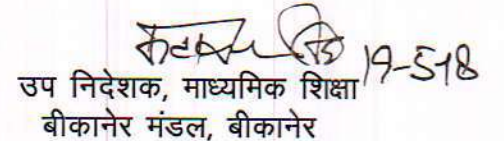 19-5-18
उप निदेशक, माध्यमिक शिक्षा
बीकानेर मंडल, बीकानेर